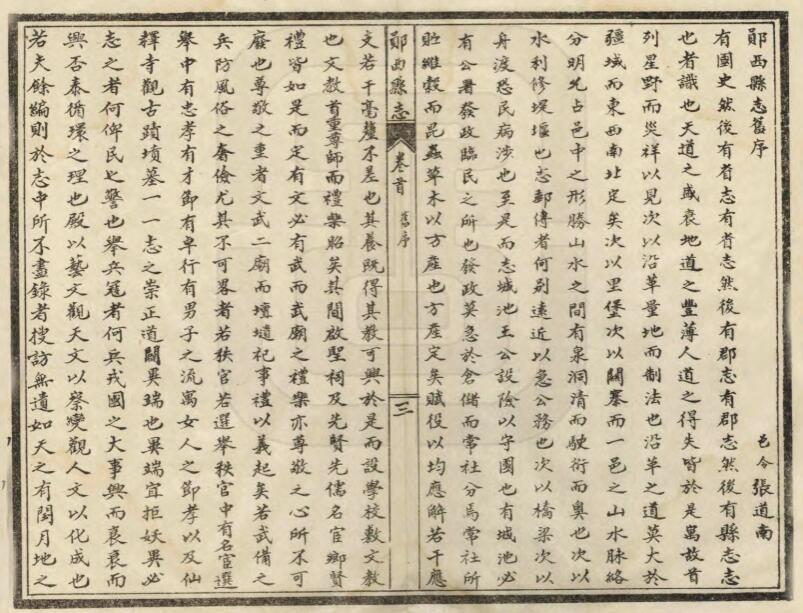 鄖西縣志舊序
邑令張道南
有國史然後有省志有省志然後有郡志有郡志然後有縣志志
也者識也天道之盛衰地道之豐薄人道之得失皆於是寓故首
列星野而災祥以見次以沿革量地而制法也沿革之道莫大於
疆域而東西南北定矣次以里堡次以關寨而一邑之山水脉絡
分明先占邑中之形勝山水之間有泉洞清而駛衍而奥也次以
水利修堤堰也志郵傳者何别遠近以急公務也次以橋梁次以
舟渡恐民病涉也至是而志城池王公設險以守國也有城池必
有公署發政臨民之所也發政莫急於倉儲而常社分焉常社所
貯維穀而昆蟲草木以方産也方産定矣賦役以均應解若干應
鄖西縣志
卷首
舊序
三
支若干毫釐不差也其養既得其教可興於是而設學校敷文教
也文教首重尊師而禮樂昭矣其間啟聖祠及先賢先儒名宦鄉賢
禮皆如是而定有文必有武而武廟之禮樂亦尊敬之心所不可
廢也尊敬之重者文武二廟而壇壝祀事禮以義起矣若武備之
兵防風俗之奢儉尤其不可畧者若秩官若選舉秩官中有名宦選
舉中有忠孝有才節有卓行有男子之流寓女人之節孝以及仙
釋寺觀古蹟墳墓一一志之崇正道闢異端也異端宜拒妖異必
志之者何俾民也警也舉兵冦者何兵戎國之大事興而衰衰而
興否泰循環之理也殿以藝文觀天文以察變觀人文以化成也
若夫餘編則於志中所不盡錄者搜訪無遺如天之有閏月地之